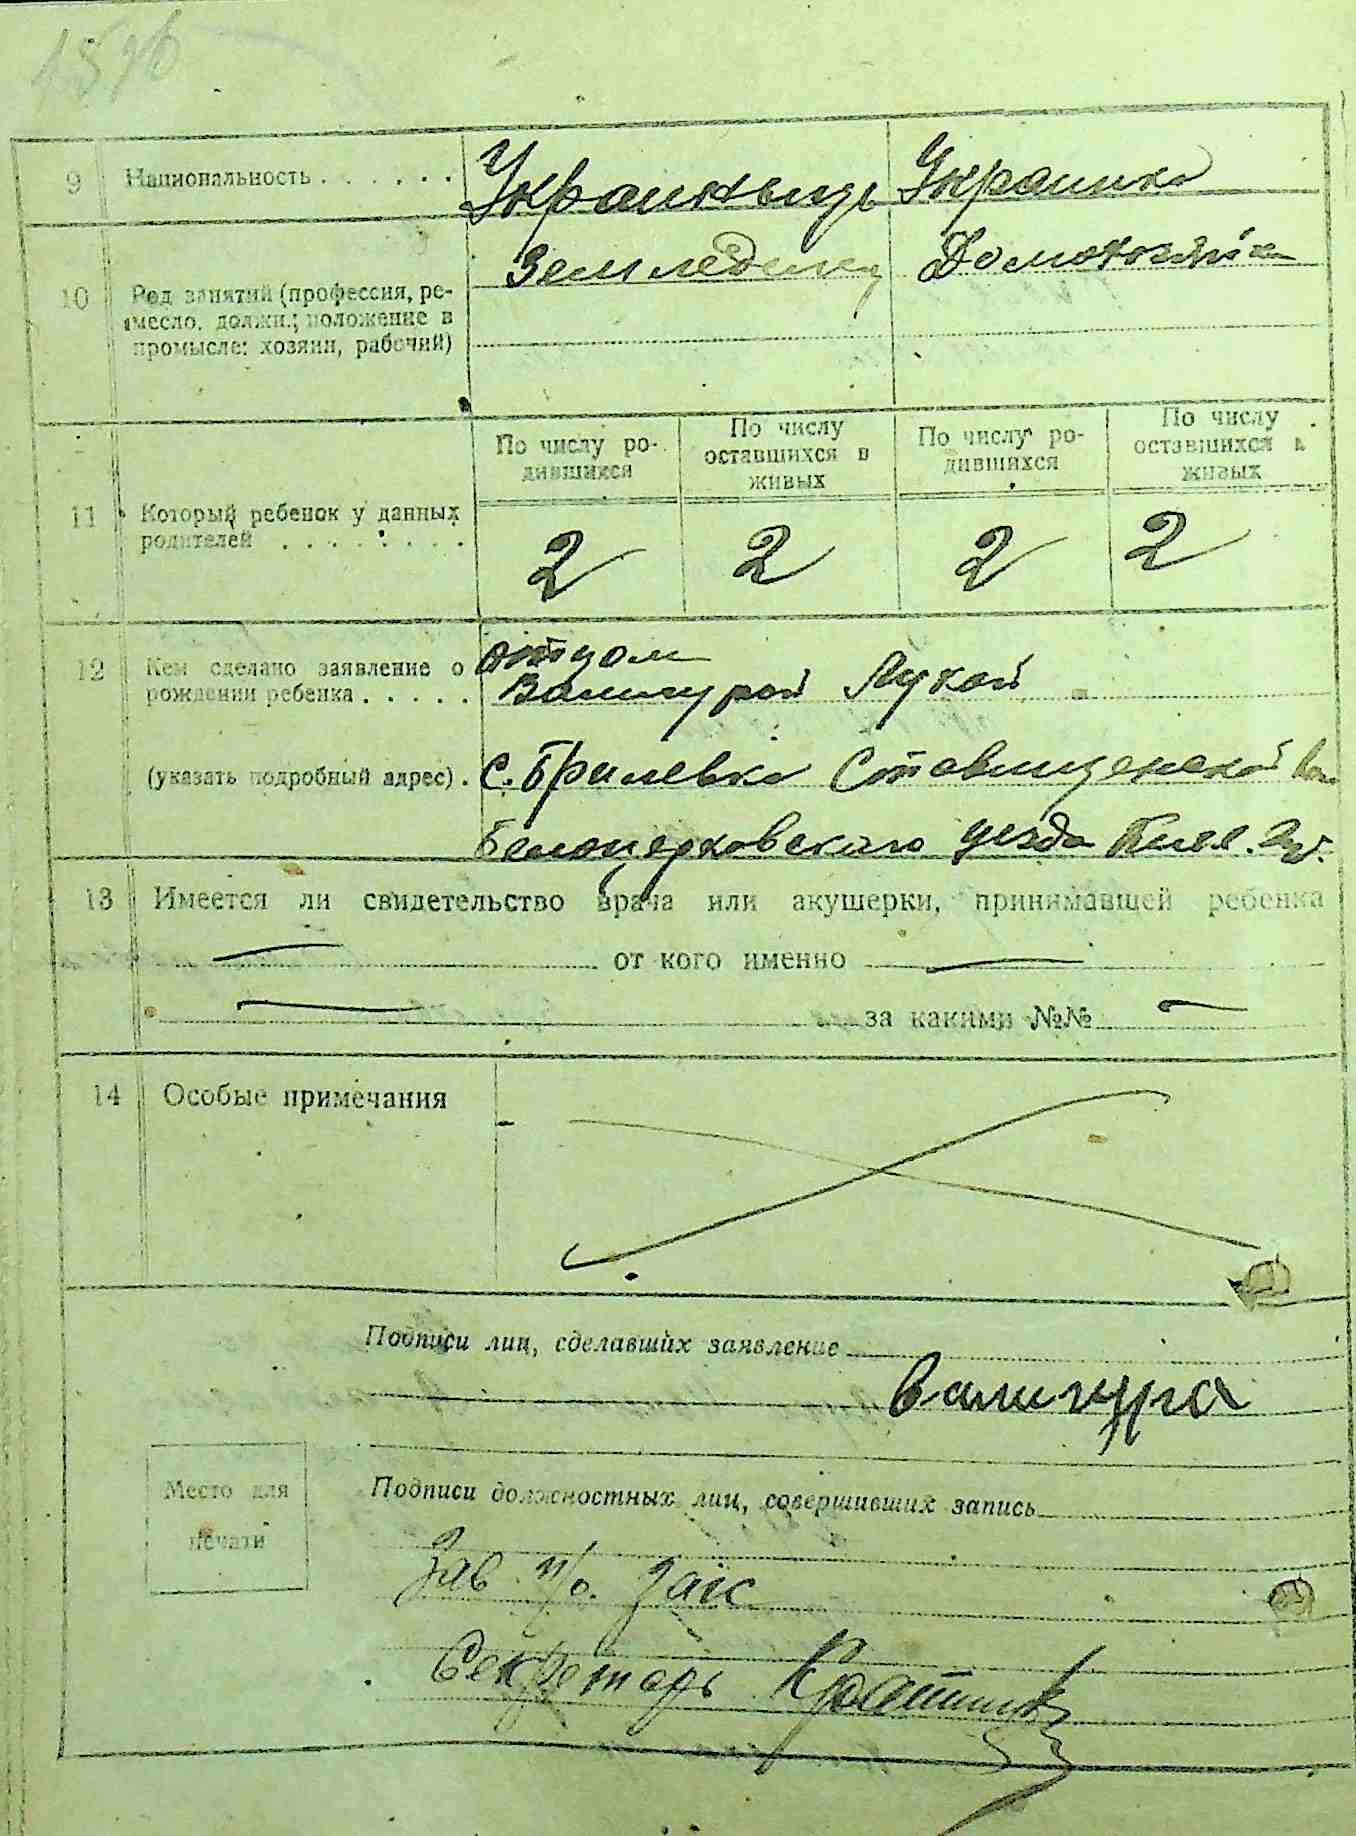 9 Национальность . . . . . . Украинець Украинка
10 Род занятий (профессия, ре-
месло, должн.; положение в
промысле: хозяин, рабочий)
Земледелец Домохозяйка
По числу ро-
дившихся
По числу
оставшихся в
живых
По числу ро-
дившихся
По числу
оставшихся в
живых
11 Который ребенок у данных
родителей . . . . . . . .
2 2 2 2
12 Кем сделано заявление о
рождении ребенка . . . . .
отцом
Валигурой Лукой
(указать подробный адрес) . с. Брилевка Ставищенской вол
Белоцерковского уезда Киев. губ.
13 Имеется ли свидетельство врача или акушерки, принимавшей ребенка
— от кого именно —
— за какими №№ —
14 Особые примечания
Подписи лиц, сделавших заявление
Валигура
Место для
печати
Подписи должностных лиц, совершивших запись
Зав п/о. Загс
Секретарь